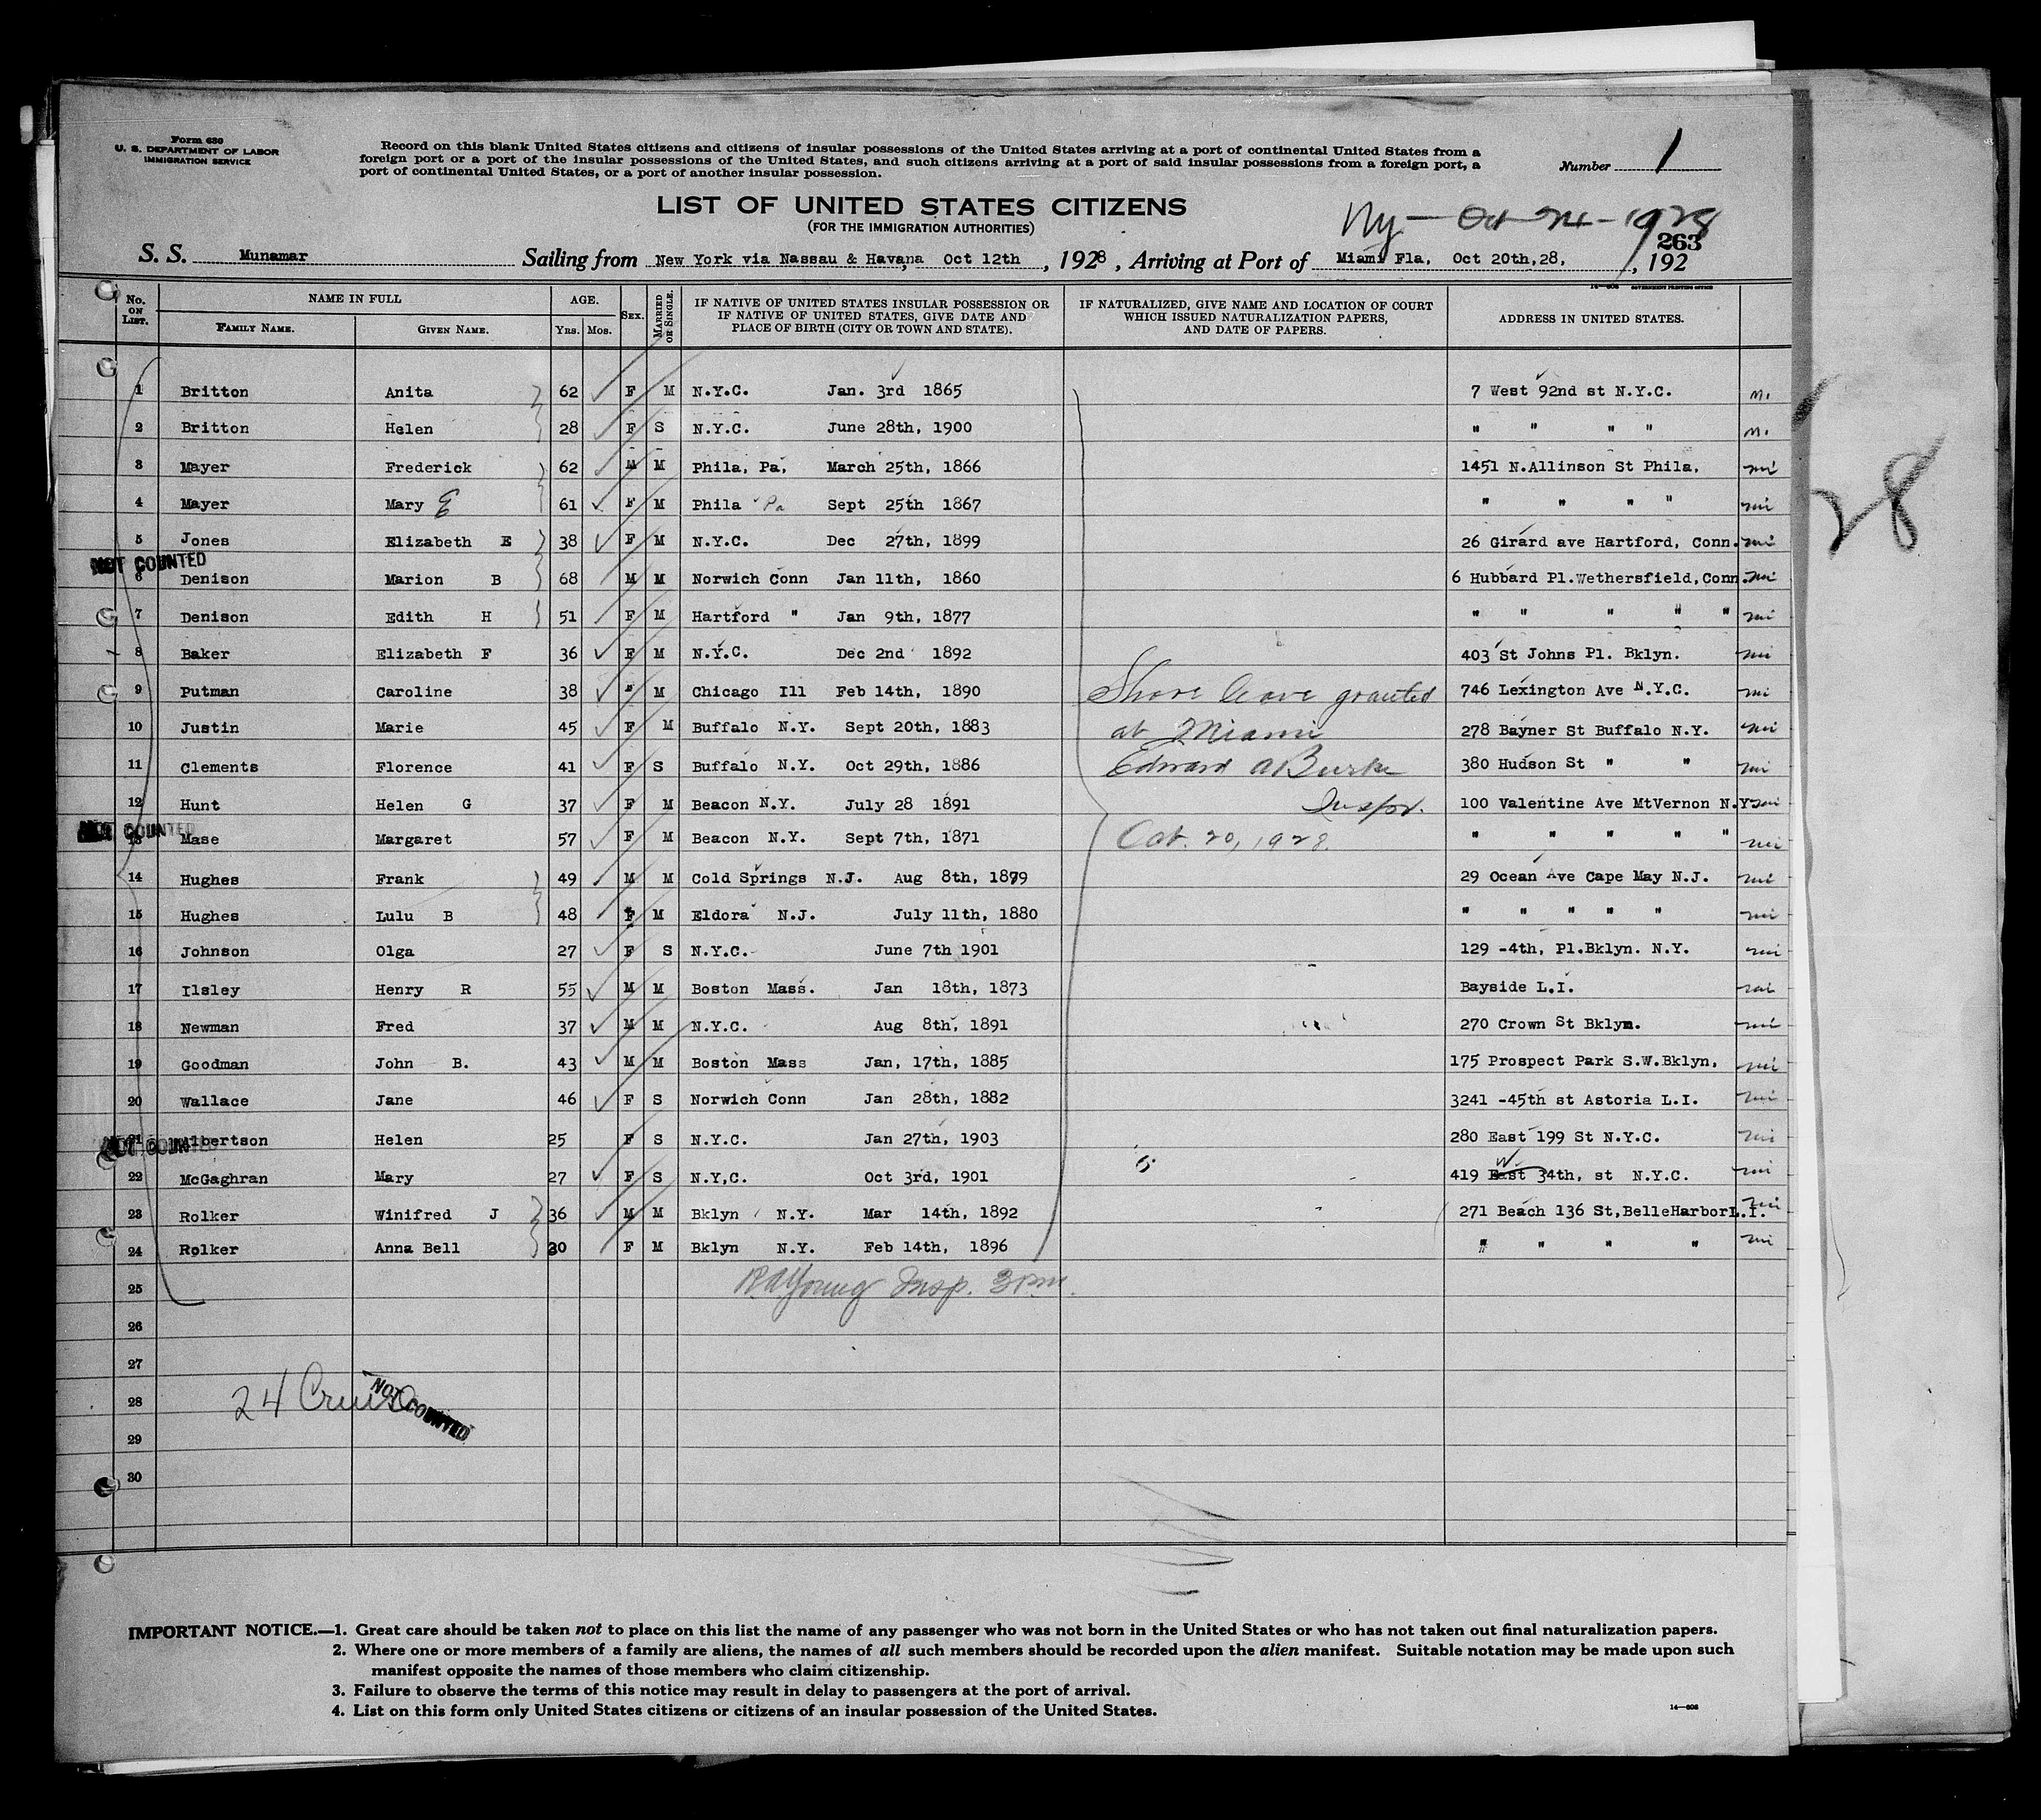 Form 630
U. S. DEPARTMENT OF LABOR
IMMIGRATION SERVICE
Record on this blank United States citizens and citizens of insular possessions of the United States arriving at a port of continental United States from a
foreign port or a port of the insular possessions of the United States, and such citizens arriving at a port of said insular possessions from a foreign port, a
port of continental United States, or a port of another insular possession.
Number 1
LIST OF UNITED STATES CITIZENS
(FOR THE IMMIGRATION AUTHORITIES)
Ny - Oct 24 - 1928
263
S. S. Munamar Sailing from New York via Nassau & Havana, Oct 12th, 1928, Arriving at Port of Miami Fla, Oct 20th,28, , 192
14—608 GOVERNMENT PRINTING OFFICE
No. ON LIST. NAME IN FULL FAMILY NAME. GIVEN NAME. AGE. Yrs. Mos. SEX. MARRIED OR SINGLE. IF NATIVE OF UNITED STATES INSULAR POSSESSION OR IF NATIVE OF UNITED STATES, GIVE DATE AND PLACE OF BIRTH (CITY OR TOWN AND STATE). IF NATURALIZED, GIVE NAME AND LOCATION OF COURT WHICH ISSUED NATURALIZATION PAPERS, AND DATE OF PAPERS. ADDRESS IN UNITED STATES.
1 Britton Anita 62 F M N.Y.C. Jan. 3rd 1865 7 West 92nd st N.Y.C.
2 Britton Helen 28 F S N.Y.C. June 28th, 1900 " " " "
3 Mayer Frederick 62 M M Phila, Pa, March 25th, 1866 1451 N.Allinson St Phila,
4 Mayer Mary E 61 F M Phila Pa Sept 25th 1867 " " " "
5 Jones Elizabeth E 38 F M N.Y.C. Dec 27th, 1899 26 Girard ave Hartford, Conn.
NOT COUNTED
6 Denison Marion B 68 M M Norwich Conn Jan 11th, 1860 6 Hubbard Pl.Wethersfield,Conn.
7 Denison Edith H 51 F M Hartford " Jan 9th, 1877 " " " " "
8 Baker Elizabeth F 36 F M N.Y.C. Dec 2nd 1892 403 St Johns Pl. Bklyn.
9 Putman Caroline 38 " M Chicago Ill Feb 14th, 1890 Shore leave granted 746 Lexington Ave N.Y.C.
10 Justin Marie 45 F M Buffalo N.Y. Sept 20th, 1883 at Miami 278 Bayner St Buffalo N.Y.
11 Clements Florence 41 F S Buffalo N.Y. Oct 29th, 1886 Edward A Burke 380 Hudson St " "
12 Hunt Helen G 37 F M Beacon N.Y. July 28 1891 Inspr. 100 Valentine Ave MtVernon N.Y
NOT COUNTED
13 Mase Margaret 57 F M Beacon N.Y. Sept 7th, 1871 Oct. 20, 1928. " " " " "
14 Hughes Frank 49 M M Cold Springs N.J. Aug 8th, 1879 29 Ocean Ave Cape May N.J.
15 Hughes Lulu B 48 F M Eldora N.J. July 11th, 1880 " " " " "
16 Johnson Olga 27 F S N.Y.C. June 7th 1901 129 -4th, Pl.Bklyn. N.Y.
17 Ilsley Henry R 55 M M Boston Mass. Jan 18th, 1873 Bayside L.I.
18 Newman Fred 37 M M N.Y.C. Aug 8th, 1891 270 Crown St Bklyn.
19 Goodman John B. 43 M M Boston Mass Jan, 17th, 1885 175 Prospect Park S.W.Bklyn,
20 Wallace Jane 46 F S Norwich Conn Jan 28th, 1882 3241 -45th st Astoria L.I.
NOT COUNTED
21 Albertson Helen 25 F S N.Y.C. Jan 27th, 1903 280 East 199 St N.Y.C.
22 McGaghran Mary 27 F S N.Y,C. Oct 3rd, 1901 419 East W 34th, st N.Y.C.
23 Rolker Winifred J 36 M M Bklyn N.Y. Mar 14th, 1892 271 Beach 136 St,BelleHarborL.I.
24 Rolker Anna Bell 30 F M Bklyn N.Y. Feb 14th, 1896 " " " "
25 R A Young Insp. 3 P.M.
26
27
28 24 Cruise NOT COUNTED
29
30
28
IMPORTANT NOTICE.—1. Great care should be taken not to place on this list the name of any passenger who was not born in the United States or who has not taken out final naturalization papers.
2. Where one or more members of a family are aliens, the names of all such members should be recorded upon the alien manifest. Suitable notation may be made upon such
manifest opposite the names of those members who claim citizenship.
3. Failure to observe the terms of this notice may result in delay to passengers at the port of arrival.
4. List on this form only United States citizens or citizens of an insular possession of the United States.
14—608